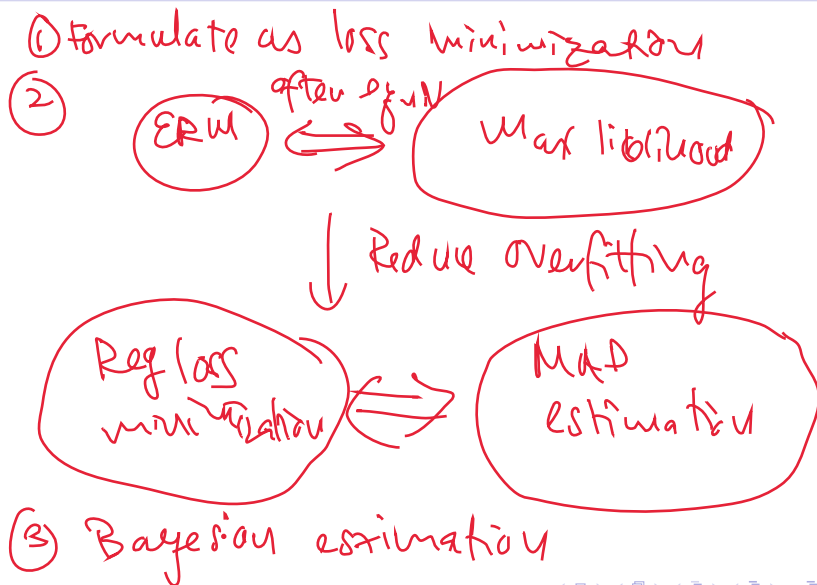 ① Formulate as loss minimization
②
ERM ⟺ after equiv Max liklihood
↓ Reduce overfitting
Reg loss minimization ⟺ MAP estimation
③ Bayesian estimation